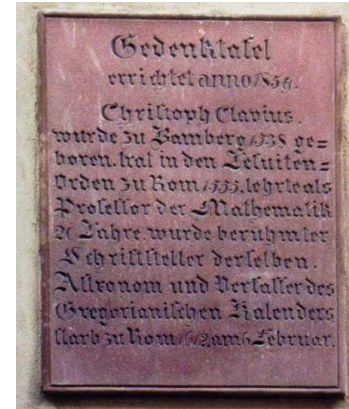 Gedenktafel
errichtet anno 1859.
Christoph Clavius.
wurde zu Bamberg 1538 ge=
boren. trat in den Jesuiten=
Orden zu Rom 1555. lehrte als
Professor der Mathematik
20 Jahre. wurde berühmter
Schriftsteller derselben.
Astronom und Verfasser des
Gregorianischen Kalenders
starb zu Rom 1612 am 6 Februar.